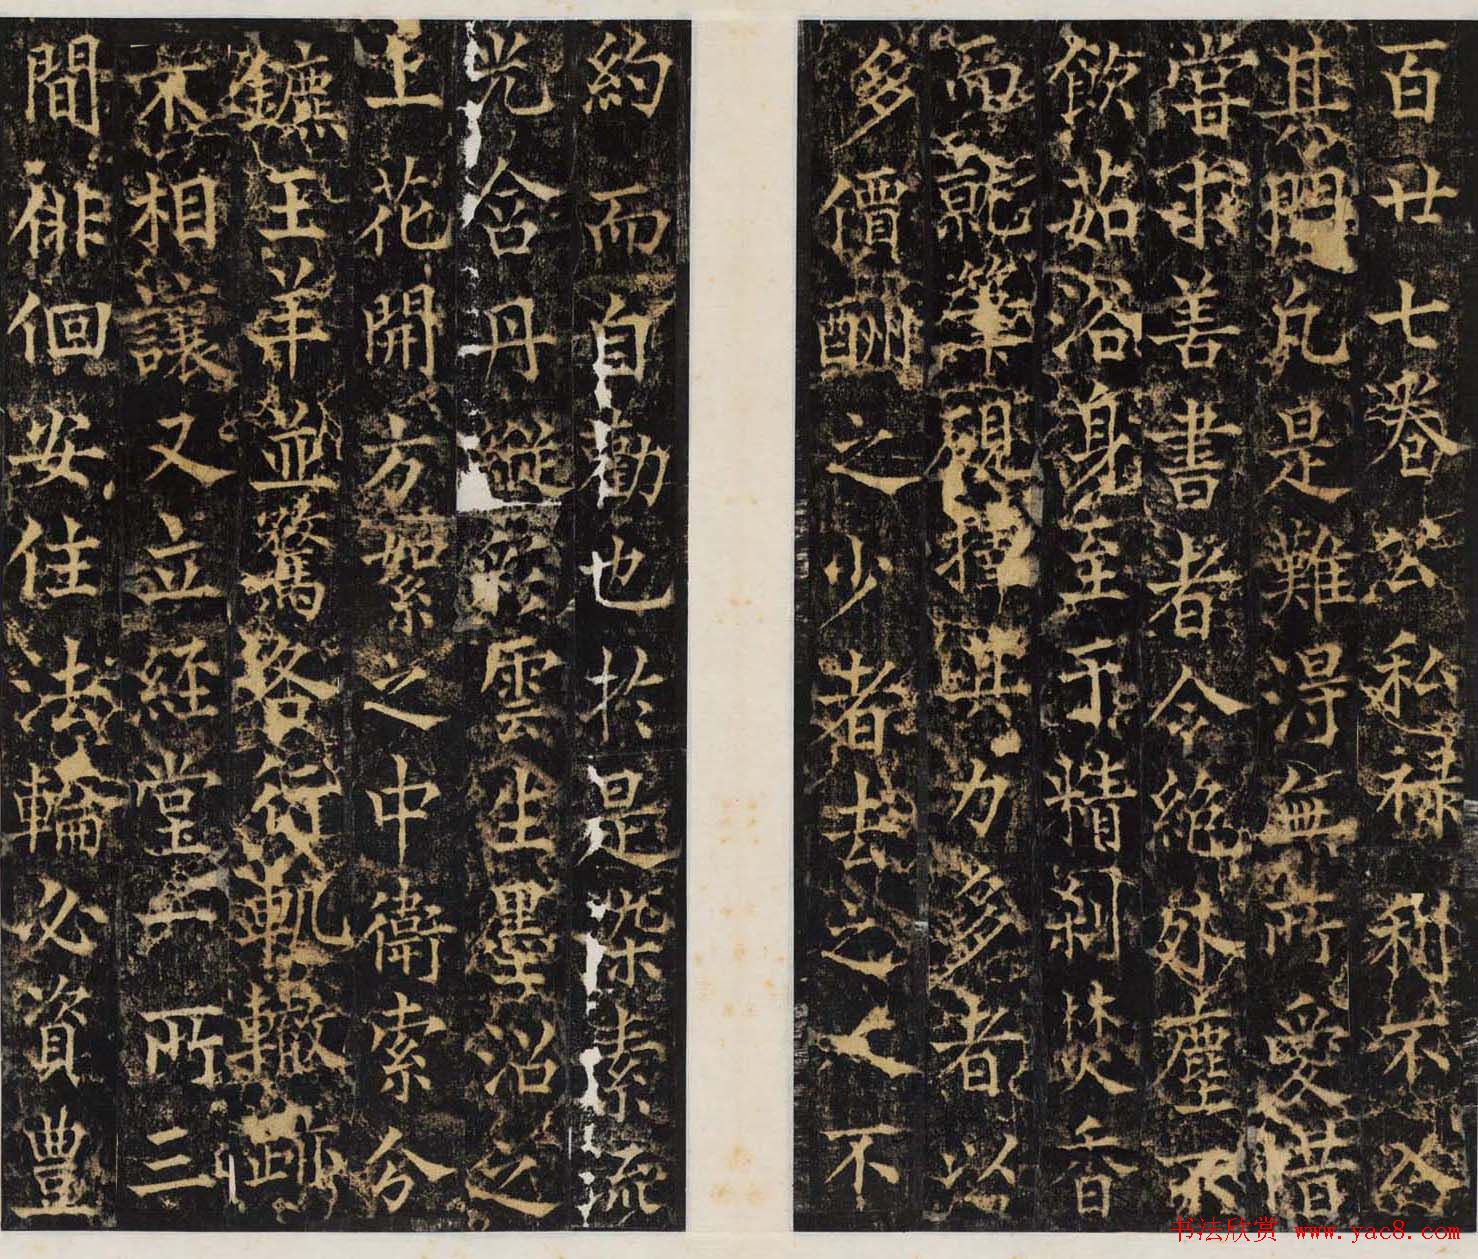 百廿七卷公私禄利不入
其門凡是難淂無所愛惜
甞求善書者令絕外塵不
飲茹浴身至于精剋焚香
而就筆硯擇其力多者以
多價酬之少者去之人不
約而自勸也於是染素流
光含丹縱彩雲生墨沼之
上花開方絮之中衛索分
鑣王羊並騖各行軌轍跡
不相讓又立經堂二所三
間俳佪安住法輪必資豊
书法欣赏 www.yac8.com